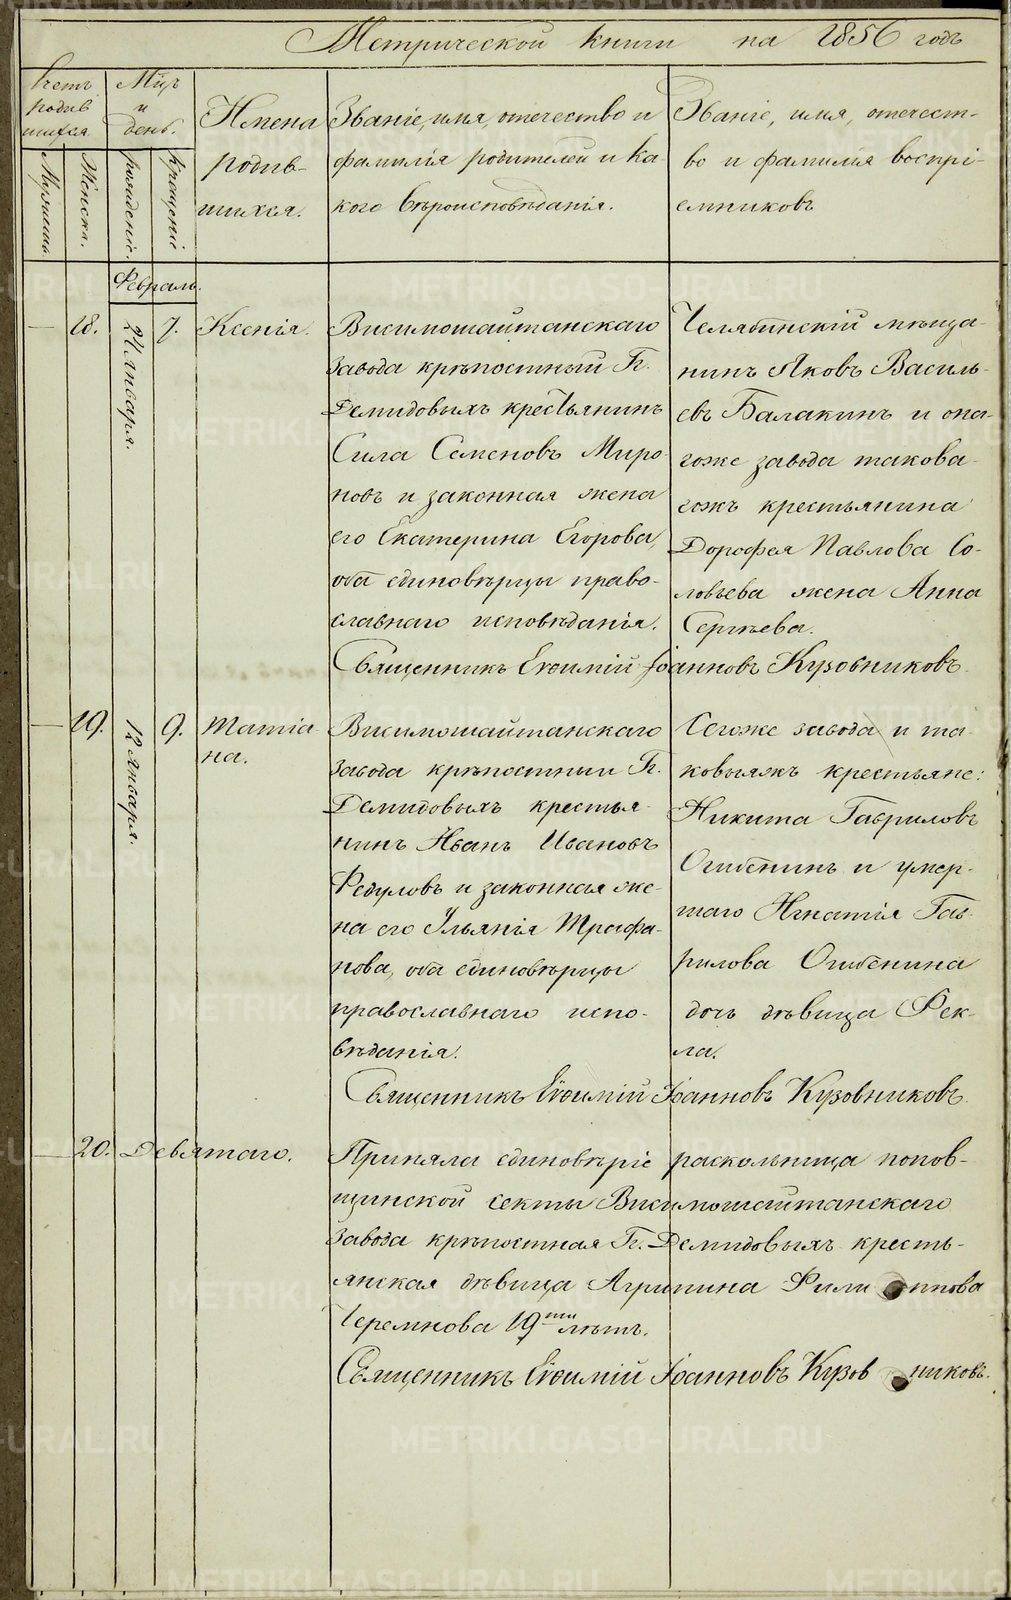 Метрической книги на 1856 годъ
Счетъ родив шихся.
Мужеска.
Женска.
Мцъ и день.
рожденіе.
крещеніе
Имена родив-
шихся.
Званіе, имя, отчество и
фамилія родителей и ка-
кого вѣроисповѣданія.
Званіе, имя, отчест-
во и фамилія воспрі-
емниковъ
Февраль.
18.
24 Января.
7.
Ксенія.
Висимошайтанскаго
завода крѣпостный Гг.
Демидовыхъ крестьянинъ
Сила Семеновъ Миро-
новъ и законная жена
его Екатерина Егорова,
оба единовѣрцы право-
славнаго исповѣданія.
Челябинскій мѣща-
нинъ Яковъ Василь-
евъ Балакинъ и она-
гоже завода такова-
гожъ крестьянина
Дорофея Павлова Со-
ловьева жена Анна
Сергѣева.
Священникъ Евѳимій Іоанновъ Кузовниковъ
19.
12 Января.
9.
Татіа
на.
Висимошайтанскаго
завода крѣпостный Гг.
Демидовыхъ крестья-
нинъ Иванъ Ивановъ
Федуловъ и законная же-
на его Ульянія Трофи-
мова, оба единовѣрцы
православнаго испо-
вѣданія.
Сегоже завода и та-
ковыежъ крестьяне:
Никита Гавриловъ
Огибенинъ и умер-
шаго Игнатія Гав-
рилова Огибенина
дочь дѣвица Фек-
ла.
Священникъ Евѳимій Іоанновъ Кузовниковъ.
20.
Девятаго.
Приняла единовѣріе раскольница попов-
щинской секты Висимошайтанскаго
завода крѣпостная Гг. Демидовыхъ кресть-
янская дѣвица Агрипина Филиппова
Черемнова 19ти лѣтъ.
Священникъ Евѳимій Іоанновъ Кузовниковъ.
METRIKI.GASO-URAL.RU